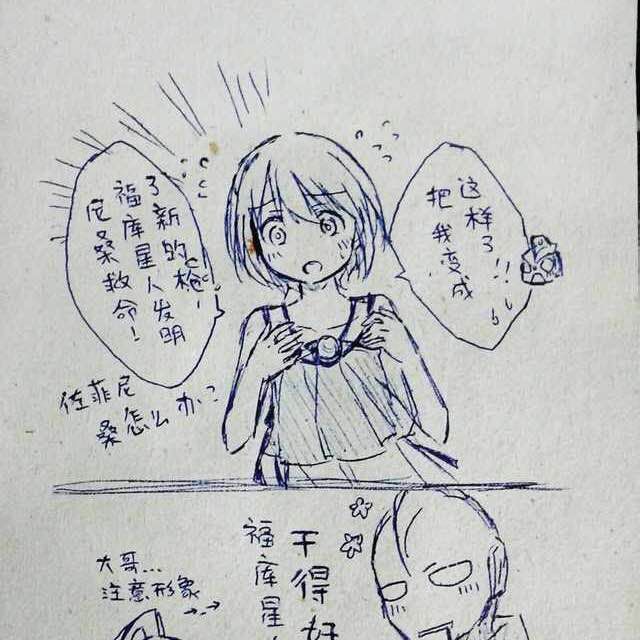 尼桑救命!
福库星人发明
了新的枪!
把我变成
这样了!!
佐菲尼
桑怎么办
干得好
福库星
大哥...
注意形象